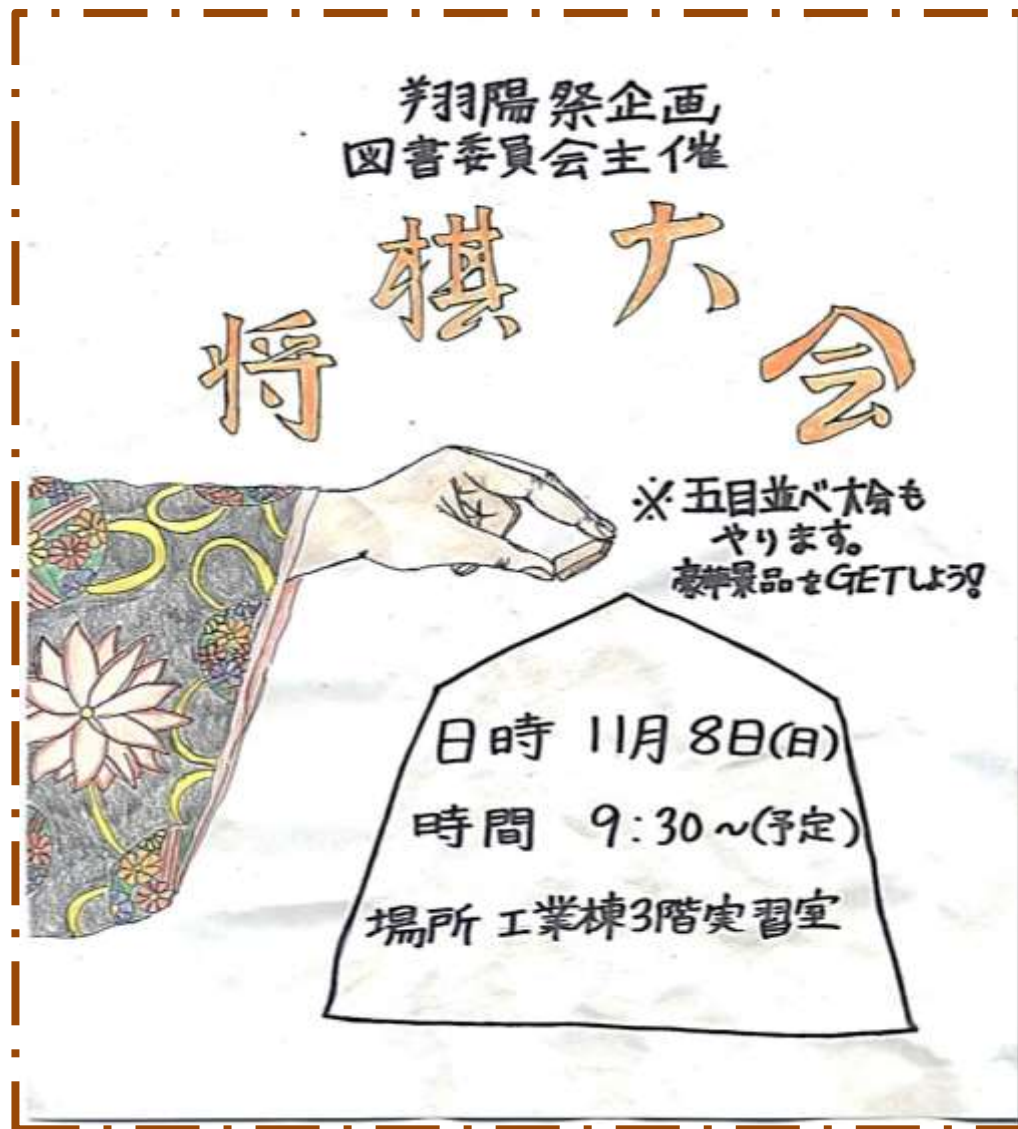 翔陽祭企画
図書委員会主催
将棋大会
※五目並べ大会も
やります。
豪華景品をGETしよう!
日時 11月8日(日)
時間 9:30~(予定)
場所 工業棟3階実習室